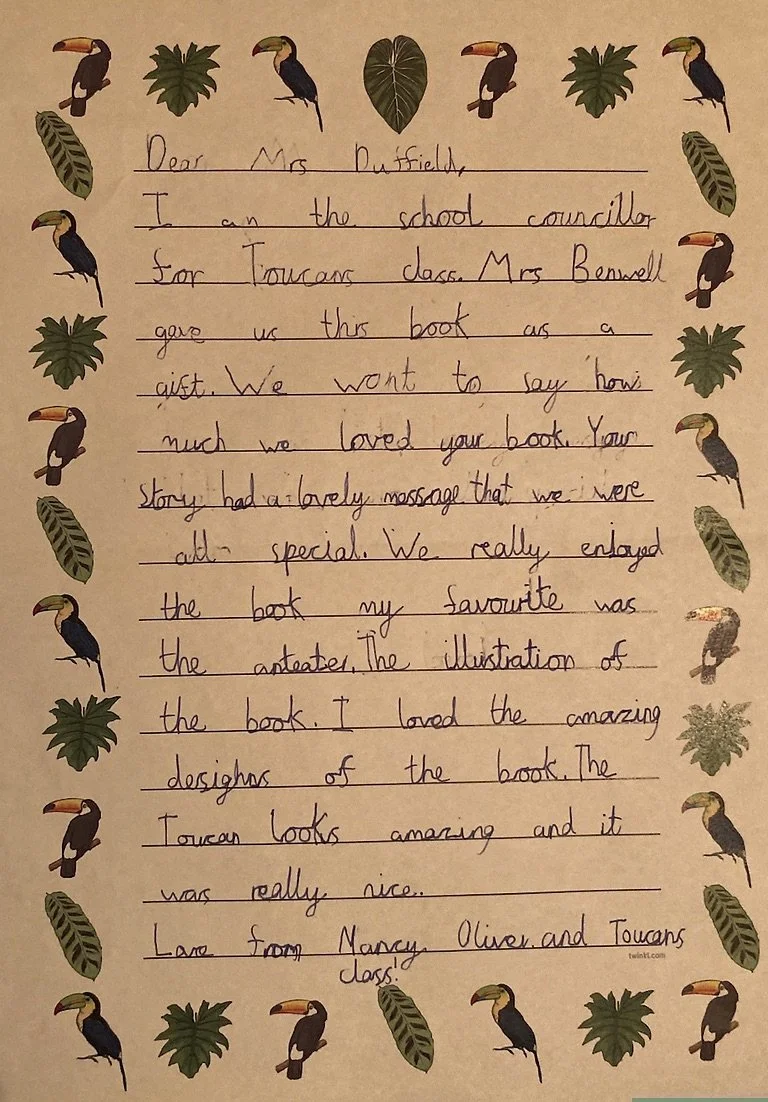 Dear Mrs Duffield,
I am the school councillor
for Toucans class. Mrs Benwell
gave us this book as a
gift. We want to say how
much we loved your book. Your
story had a lovely message that we were
all special. We really enloyed
the book my favourite was
the anteater. The illustration of
the book. I loved the amazing
desighns of the book. The
Toucan looks amazing and it
was really nice.
Love from Nancy Oliver and Toucans
class!
twinkl.com